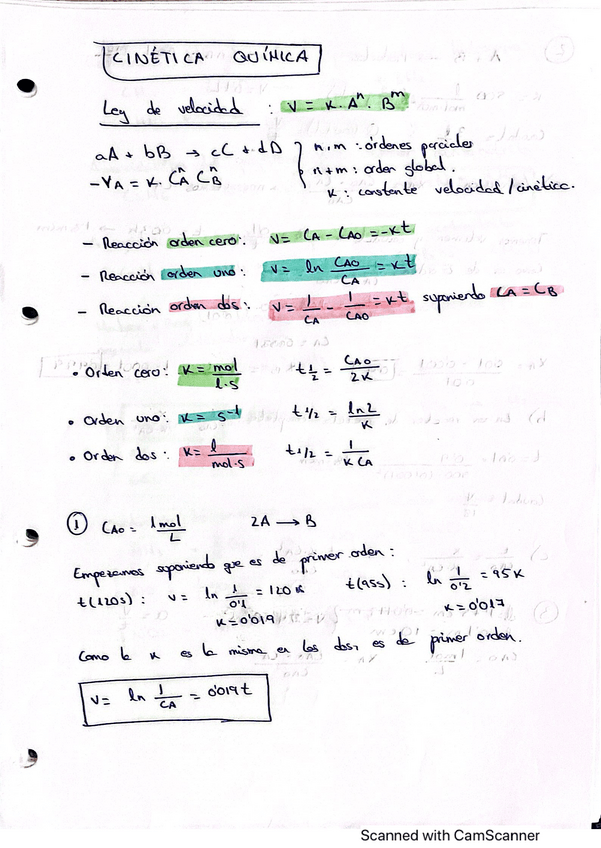 CINÉTICA QUÍMICA
Ley de velocidad : v = k. Aⁿ. Bᵐ
aA + bB → cC + dD
-rA = k. CAⁿ CBⁿ
n, m : órdenes parciales
n+m : orden global.
k : constante velocidad / cinética.
- Reacción orden cero: v = CA - CAO = -kt
- Reacción orden uno: v = ln CAO/CA = kt
- Reacción orden dos: v = 1/CA - 1/CAO = kt suponiendo CA = CB
• Orden cero: k = mol/l.s t 1/2 = CAO/2k
• Orden uno: k = s⁻¹ t 1/2 = ln2/k
• Orden dos: k = l/mol.s t 1/2 = 1/k CA
① CAO = 1mol/L 2A → B
Empezamos suponiendo que es de primer orden:
t(120s) : v = ln 1/0'1 = 120k t(95s) : ln 1/0'2 = 95k
k = 0'019 k = 0'017
Como la k es la misma en los dos, es de primer orden.
v = ln 1/CA = 0'019t
Scanned with CamScanner